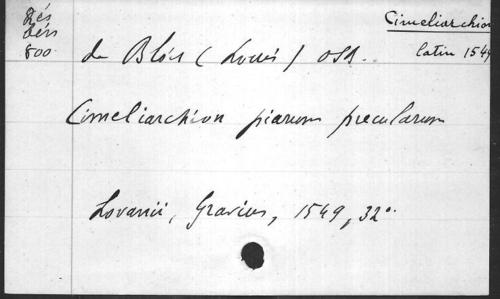 Rés
Dérs
800
Cimeliarchion
latin 1549
de Blois (Louis) OSB.
Cimeliarchion piarum precularum
Lovanii, Gravius, 1549, 32°.